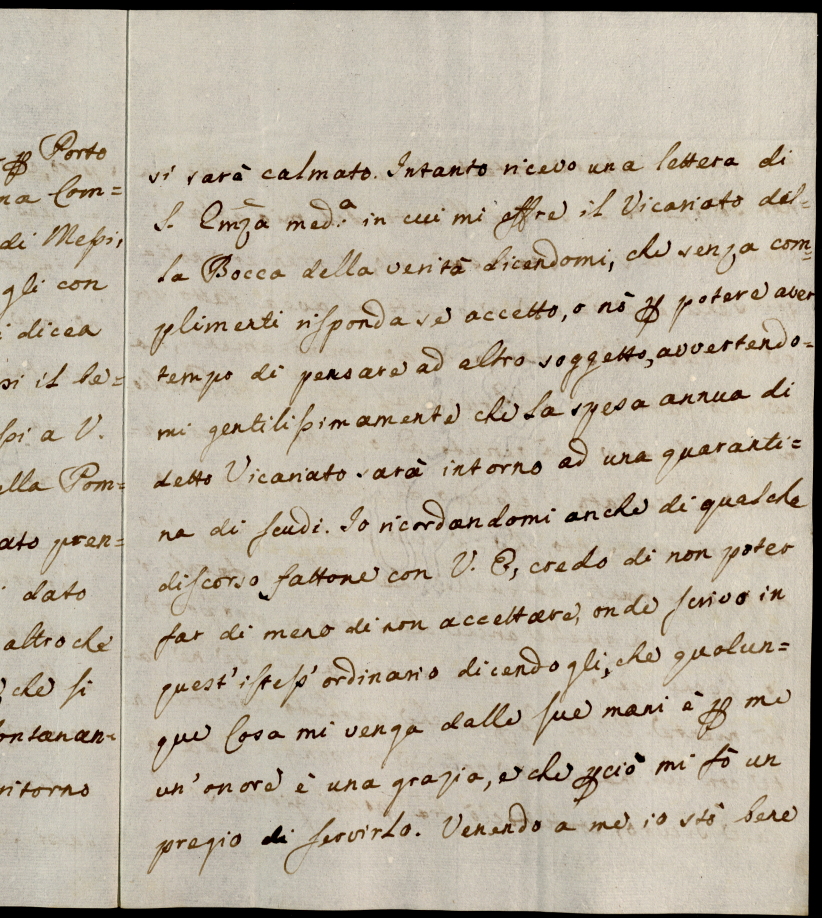 Porto
na Com=
di Messi,
gli con
i dicea
si il be=
ssi a V.
ella Pom=
ato pren=
dato
altro che
che si
ontanan=
ritorno
si sarà calmato. Intanto ricevo una lettera di
S. Emza med.a in cui mi offre il Vicariato del=
la Bocca della verità dicendomi, che senza com=
plimenti risponda se accetto, o nò p potere aver
tempo di pensare ad altro soggetto, avvertendo=
mi gentilissimamente che la spesa annua di
detto Vicariato sarà intorno ad una quaranti=
na di scudi. Io ricordandomi anche di qualche
discorso fattone con V. E., credo di non poter
far di meno di non accettare, onde scrivo in
quest'istess'ordinario dicendogli, che qualun=
que Cosa mi venga dalle sue mani è p me
un'onore è una grazia, e che pciò mi fò un
pregio di servirlo. Venendo a me, io stò bene